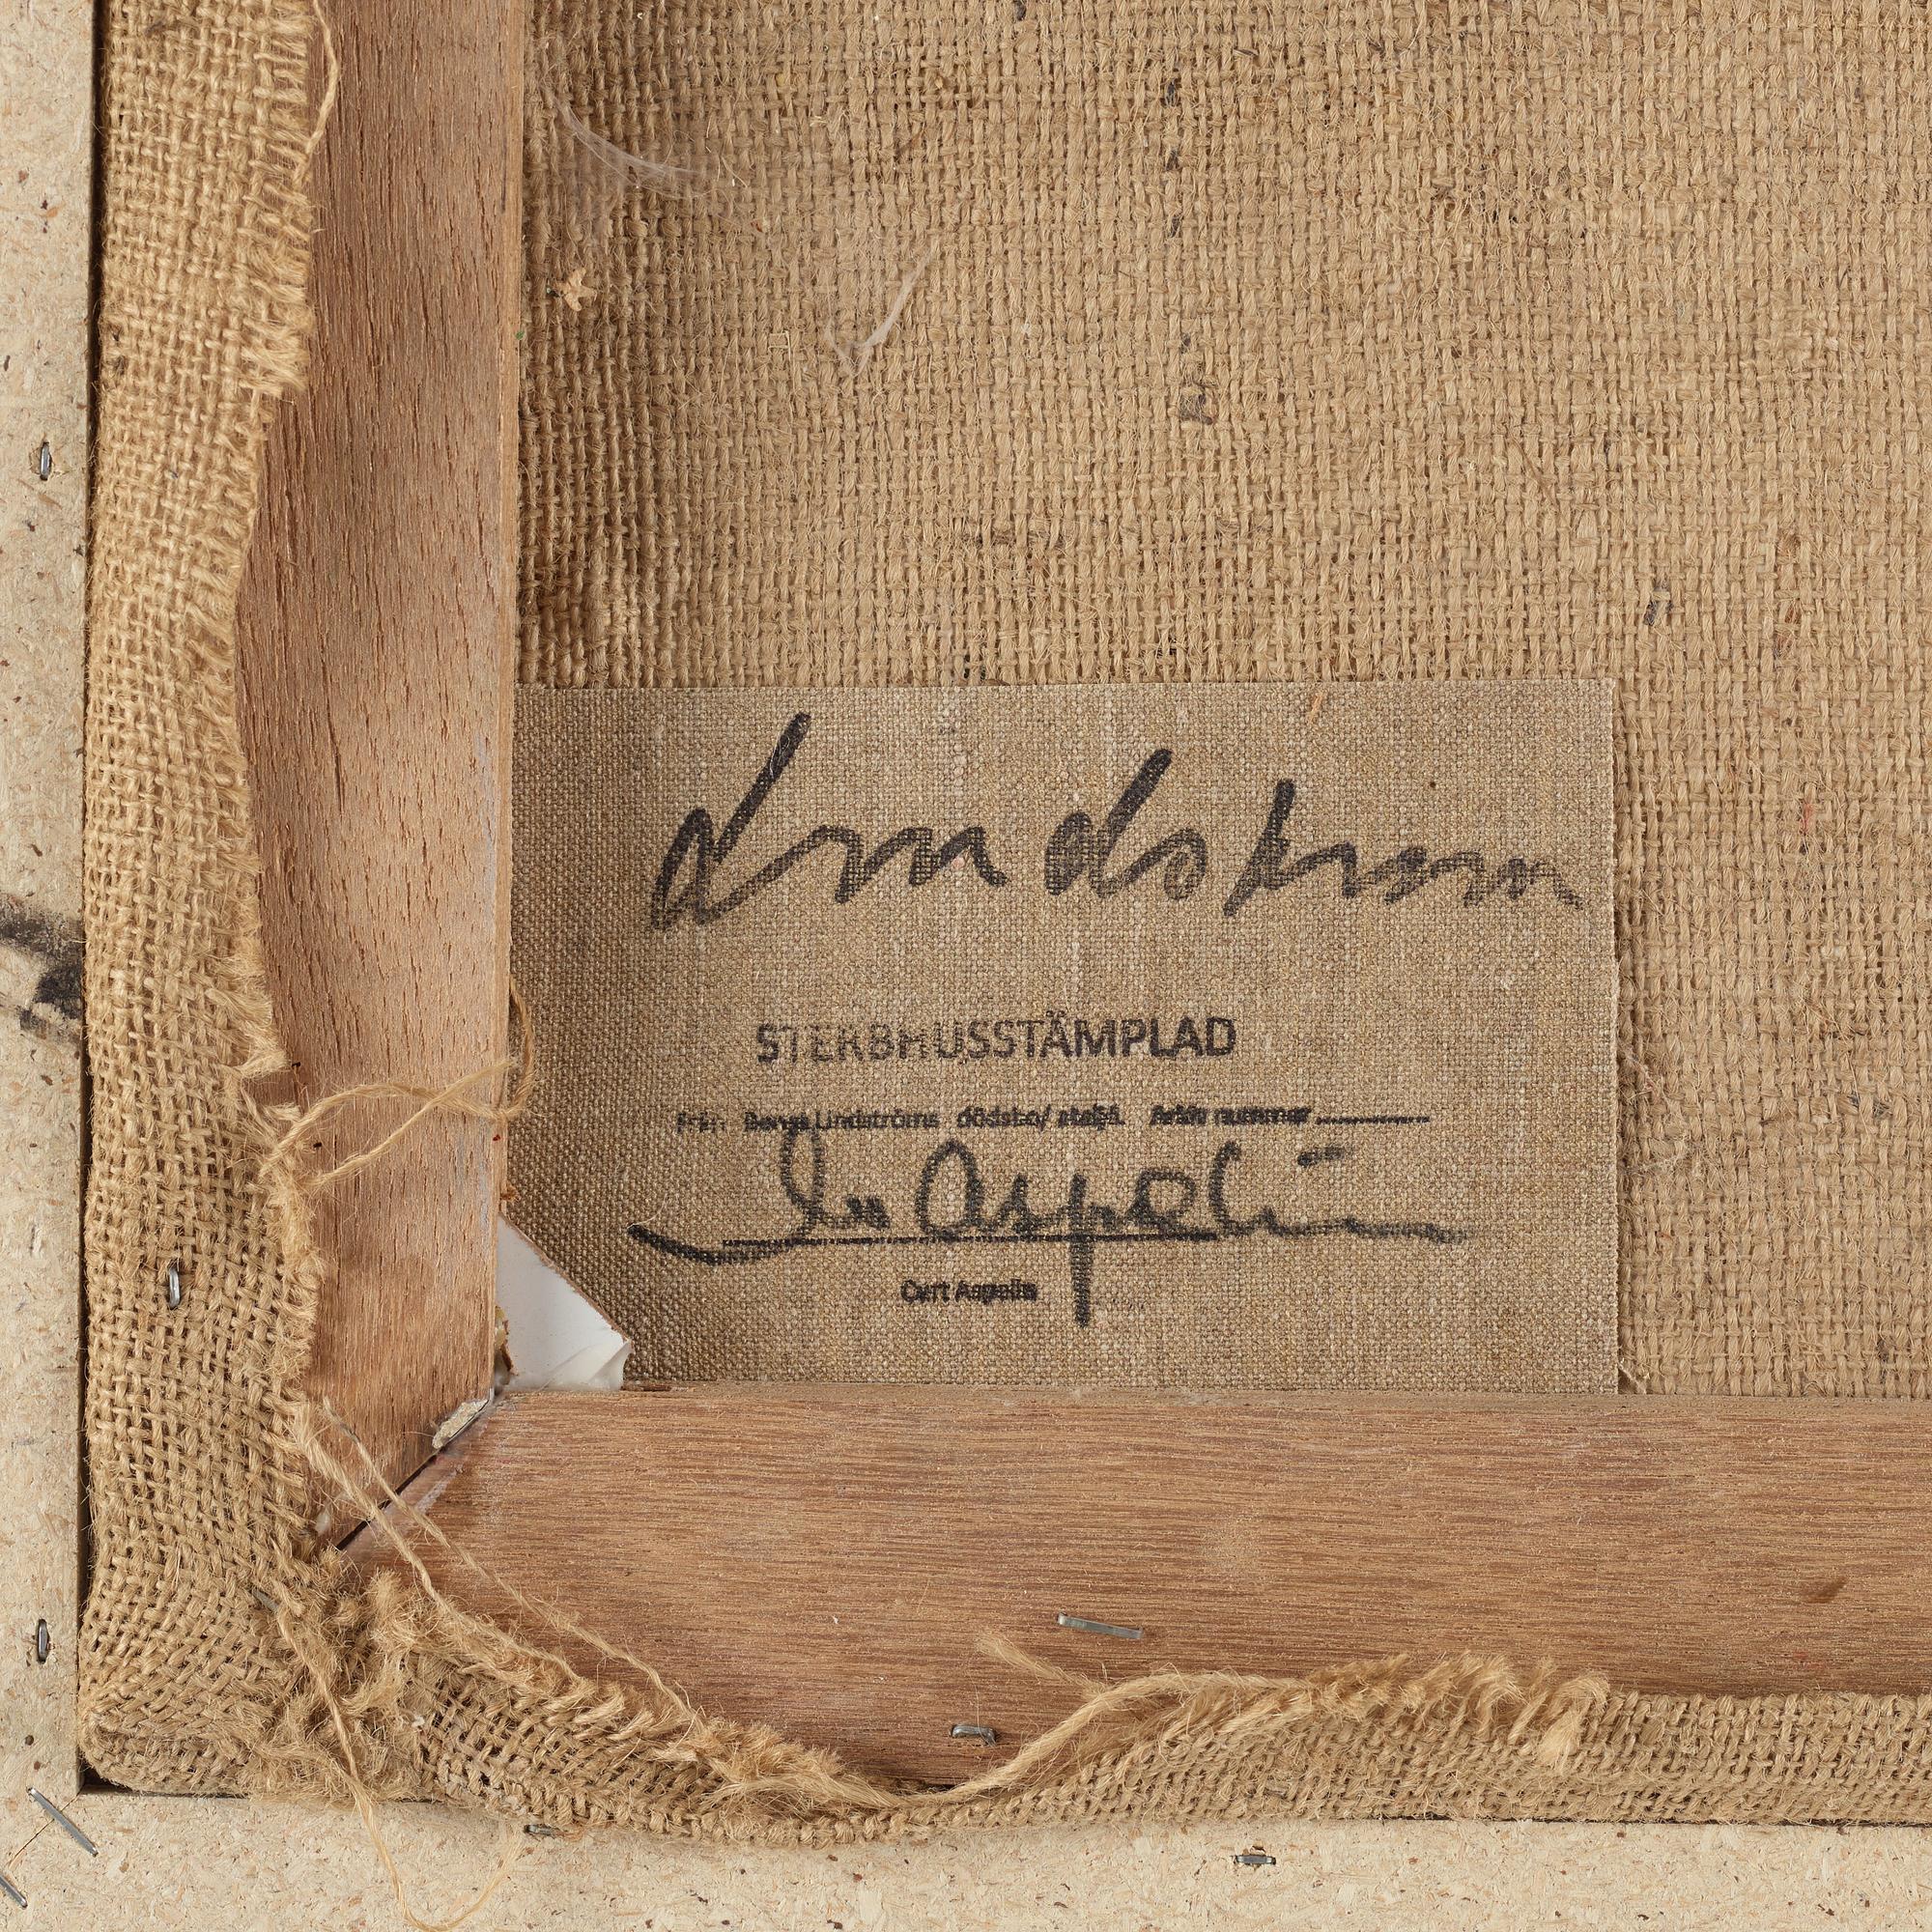 Lindstrom
STERBHUSSTÄMPLAD
Från Bengt Lindströms dödsbo/ ateljé. Arkiv nummer
Aspelin
Curt Aspelin